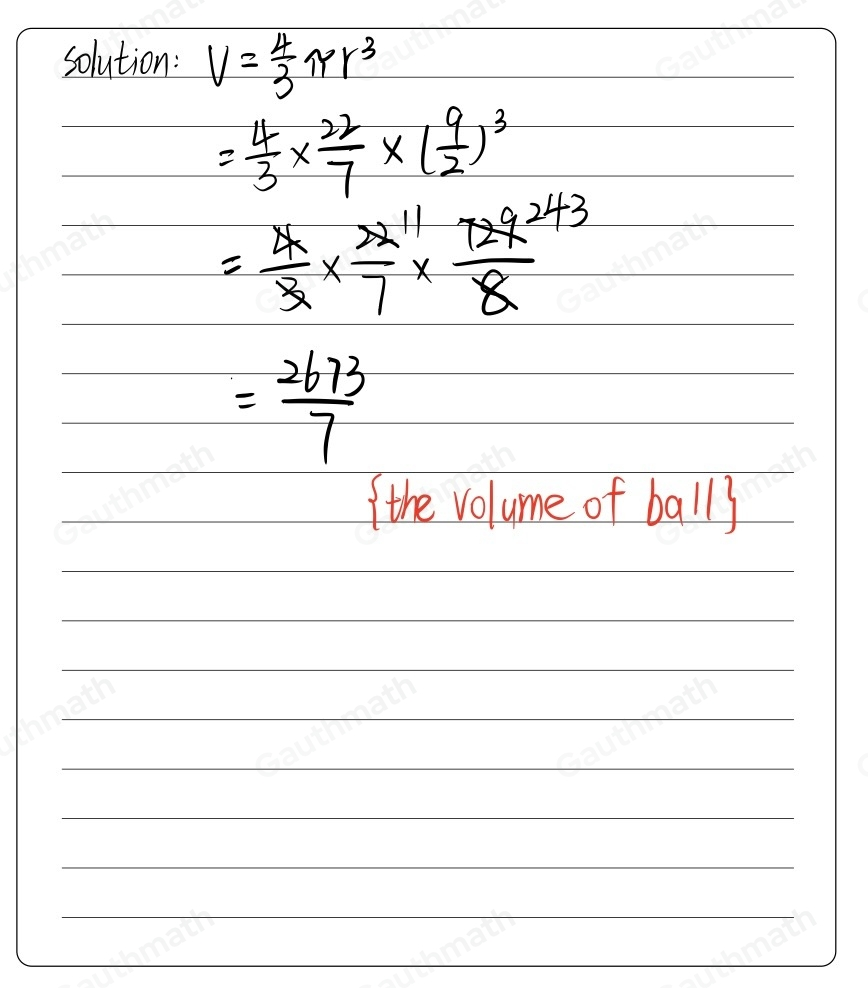 Solution: V = 4/3 πr³
= 4/3 × 22/7 × (9/2)³
= 4/3 × 22/7 11 × 729/8 243
= 2673/7
{the volume of ball}
Gauthmath